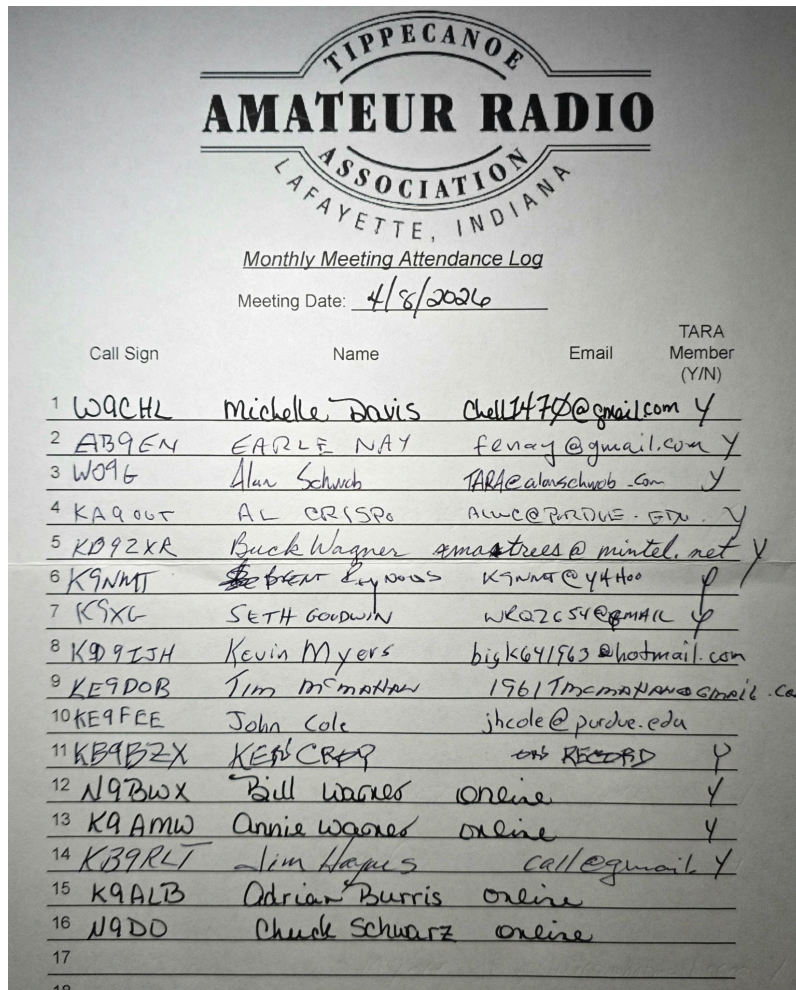 TIPPECANOE
AMATEUR RADIO
ASSOCIATION
LAFAYETTE, INDIANA
Monthly Meeting Attendance Log
Meeting Date: 4/8/2026
Call Sign Name Email TARA Member (Y/N)
1 W9CHL Michelle Davis chell147Ø@gmail.com Y
2 AB9EN EARLE NAY fenay@gmail.com Y
3 WO9G Alan Schwob TARA@alanschwob.com Y
4 KA9OUT AL CRISPO ALWC@PURDUE.EDU. Y
5 KD9ZXR Buck Wagner xmastrees@mintel.net Y
6 K9NMT BRENT K9NMT@YAHOO Y
7 K9XG SETH GOODWIN WRQZ654@GMAIL Y
8 KD9IJH Kevin Myers bigk641963@hotmail.com
9 KE9DOB Tim McMAHAN 1961TMCMAHAN@GMAIL.CO
10 KE9FEE John Cole jhcole@purdue.edu
11 KB9BZX KEN CROP ON RECORD Y
12 N9BWX Bill Wagner online Y
13 K9AMW Annie Wagner online Y
14 KB9RLT Jim Haynes call@gmail Y
15 K9ALB Adrian Burris online
16 N9DO Chuck Schwarz online
17